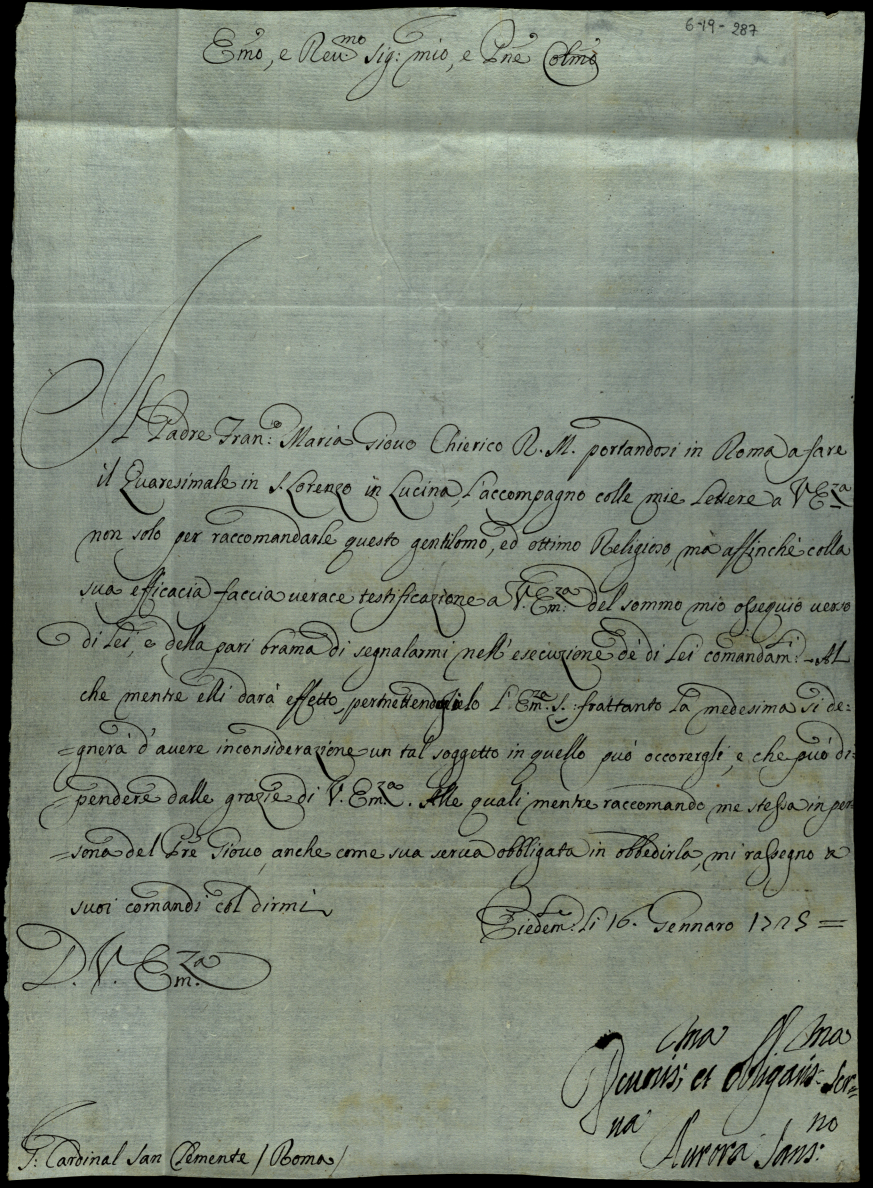 6-19-287
Emo, e Reu.mo sig: mio, e Pne Colmo
Il Padre Fran:o Maria Giouo Chierico R. M. portandosi in Roma a fare
il Quaresimale in S. Lorenzo in Lucina, l'accompagno colle mie Lettere a V. Eza
non solo per raccomandarle questo gentilomo, ed ottimo Religioso, ma affinchè colla
sua efficacia faccia uerace testificazione a V. Em:za del sommo mio ossequio uerso
di Lei, e della pari brama di segnalarmi nell'esecuzione de' di Lei comandam:ti Al
che mentre elli darà effetto, permettendoglielo l'Em:ze S.: frattanto La medesima si de=
=gnerà d'auere inconsiderazione un tal soggetto in quello può occorergli, e che può di=
=pendere dalle grazie di V. Em.za. Alle quali mentre raccomando me stessa in per
=sona del Pre Giouo, anche come sua serua obbligata in obbedirla, mi rassegno a
suoi comandi col dirmi
Piedem:te Li 16. Gennaro 1725 =
D. V. Em.za
Deuotis:ma et obligatis:ma Ser=
ua
Aurora Sans:no
S:r Cardinal San Clemente / Roma /